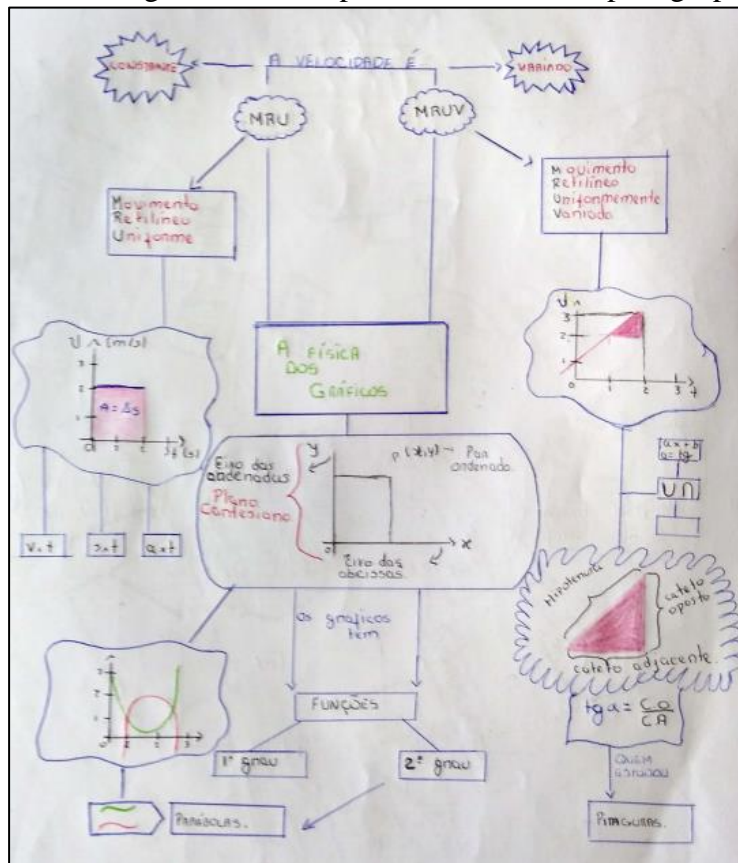 A VELOCIDADE É
CONSTANTE
VARIADO
MRU
MRUV
Movimento
Retilíneo
Uniforme
Movimento
Retilíneo
Uniformemente
Variado
V (m/s)
3
2
1
0
A = Δs
1 2 3 t (s)
V
3
2
1
0 1 2 3 t
A FÍSICA
DOS
GRÁFICOS
v x t
s x t
a x t
Eixo das
ordenadas
Plano
Cartesiano
y
P (x,y) → Par
ordenado
0
x
Eixo das
abcissas
ax + b
a = tg
Hipotenusa
cateto
oposto
cateto adjacente
tg a = CO
CA
QUEM
ESTUDOU
PITAGORAS.
Os gráficos
têm
FUNÇÕES
1º grau
2º grau
3
2
1
0
PARÁBOLAS.